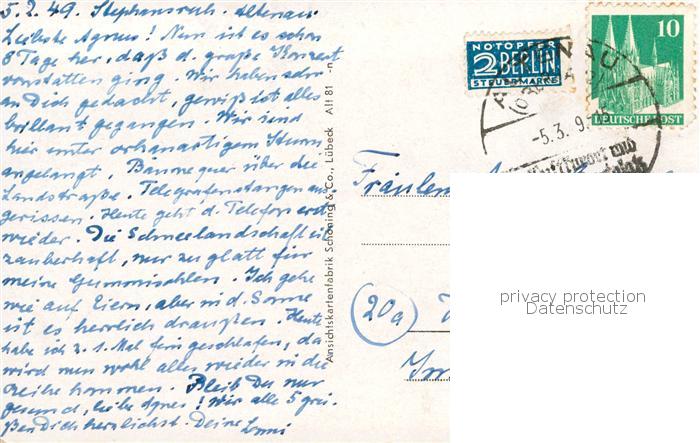 5.3.49. Stephansruh. Altenau.
Liebste Agnes! Nun ist es schon
8 Tage her, daß d. große Konzert
vonstatten ging. Wir haben sehr
an Dich gedacht, gewiß ist alles
brillant gegangen. Wir sind
hier unter orkanartigem Sturm
angelangt. Bäume quer über die
Landstraße. Telegrafenstangen aus-
gerissen. Heute geht d. Telefon erst
wieder. Die Schneelandschaft ist
zauberhaft, nur zu glatt für
meine Gummisohlen. Ich gehe
wie auf Eiern, aber in d. Sonne
ist es herrlich draußen. Heute
habe ich z. 1. Mal fein geschlafen, da
wird nun wohl alles wieder in die
Reihe kommen. Bleib Du nur
gesund, liebe Agnes! Wir alle 5 grü-
ßen Dich herzlichst. Deine
Ansichtskartenfabrik Schöning & Co., Lübeck Alt 81 -n
NOTOPFER
2 BERLIN
STEUERMARKE
10
DEUTSCHE POST
ALTENAU
-5.3.9
Luftkurort und
Fräulein
20a
privacy protection
Datenschutz